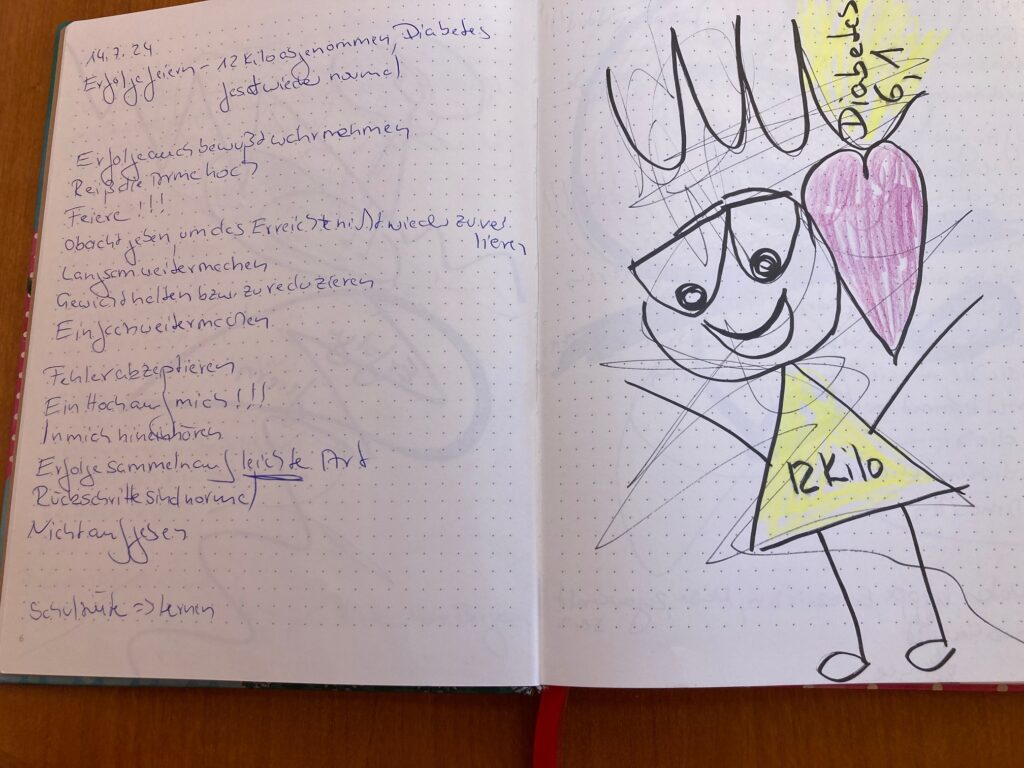 14.7.24
Erfolge feiern - 12 Kilo abgenommen, Diabetes
fast wieder normal
Erfolge auch bewußt wahrnehmen
Reiß die Arme hoch
Feiere !!!
obacht geben um das Erreichte nicht wieder zu ver
lieren
Langsam weitermachen
Gewicht halten bzw. zu reduzieren
Einfach weitermachen
Fehler akzeptieren
Ein Hoch auf mich !!!
In mich hineinhören
Erfolge sammeln auf leichte Art
Rückschritte sind normal
Nicht aufgeben
Schultüte => Lernen
6
Diabetes
6,1
12 Kilo